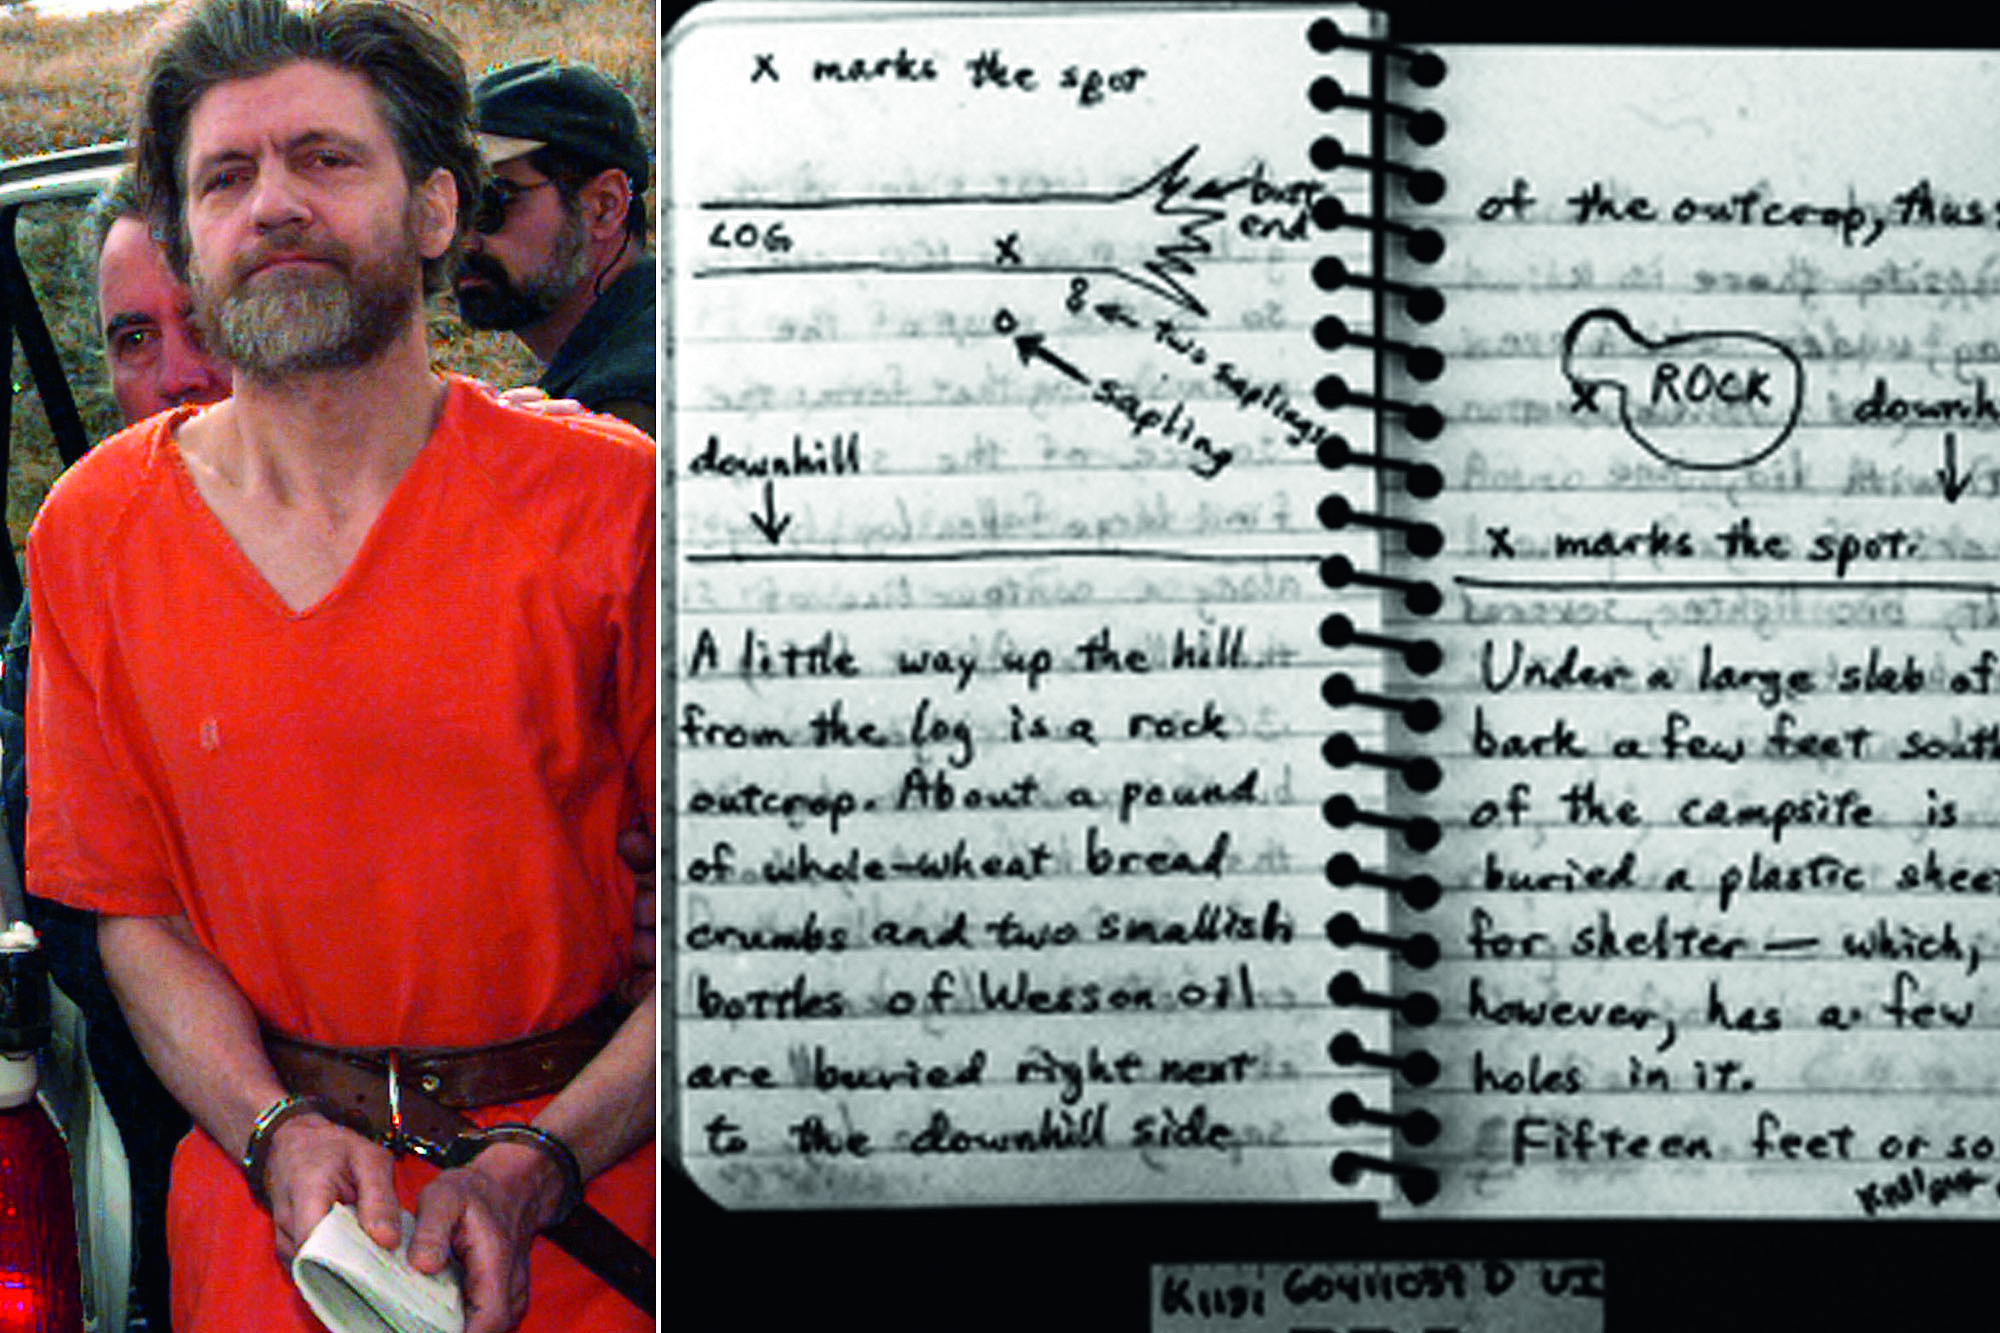 x marks the spot
butt
end
LOG
x
two saplings
sapling
downhill
A little way up the hill
from the log is a rock
outcrop. About a pound
of whole-wheat bread
crumbs and two smallish
bottles of Wesson oil
are buried right next
to the downhill side
of the outcrop, thus:
ROCK
x
x marks the spot.
Under a large slab of
bark a few feet south
of the campsite is
buried a plastic sheet
for shelter — which,
however, has a few
holes in it.
Fifteen feet or so